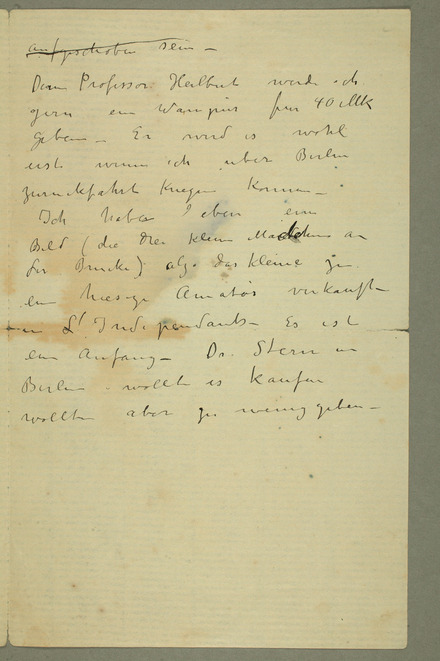 aufgeschoben sein –
Dem Professor Heilbut werde ich
gern ein Wampir für 40 Mk
geben – Er wird es wohl
erst wenn ich über Berlin
zurückfahre kriegen können –
Ich habe eben ein
Bild (die drei kleine Mädchen an
der Brücke) alg. das kleine zu
ein hiesige Amatör verkauft –
in L'Independants – Es ist
ein Anfang – Dr. Stern in
Berlin wollte es kaufen
wollte aber zu wenig geben –